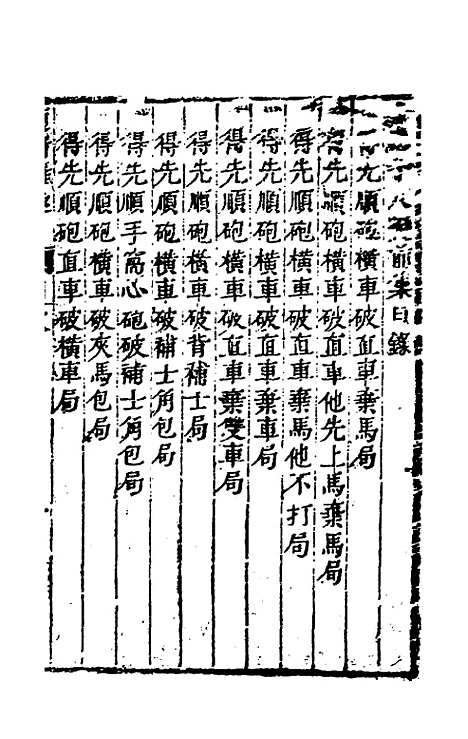 前集目錄
得先順砲橫車破直車棄馬局
得先順砲橫車破直車他先上馬棄馬局
得先順砲橫車破直車棄馬他不打局
得先順砲橫車破直車棄車局
得先順砲橫車破直車棄雙車局
得先順砲橫車破背補士局
得先順砲橫車破補士角包局
得先順手窩心砲破補士角包局
得先順砲橫車破夾馬包局
得先順砲直車破橫車局